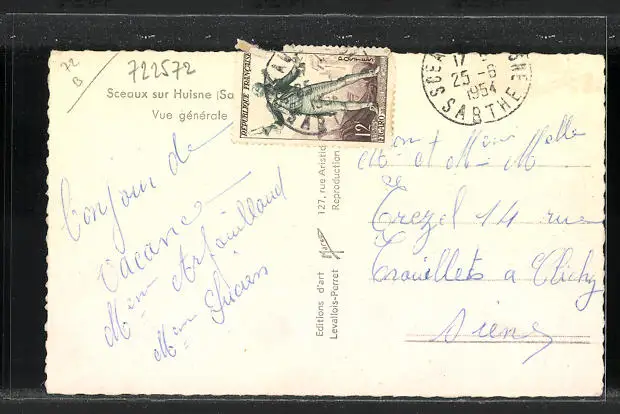 72
B
722572
Sceaux sur Huisne (Sa
Vue générale
Bonjour de
Vacance
Mme
Mme Lucien
Editions d'art
Levallois-Perret
127, rue Aristid
Reproduction
REPUBLIQUE FRANÇAISE
POSTES
12F
FIGARO
SCEA
17
25 -6
1954
SARTHE
Mon et Mme Melle
de
Crezel 14 rue
Trouillets a Clichy
Siene